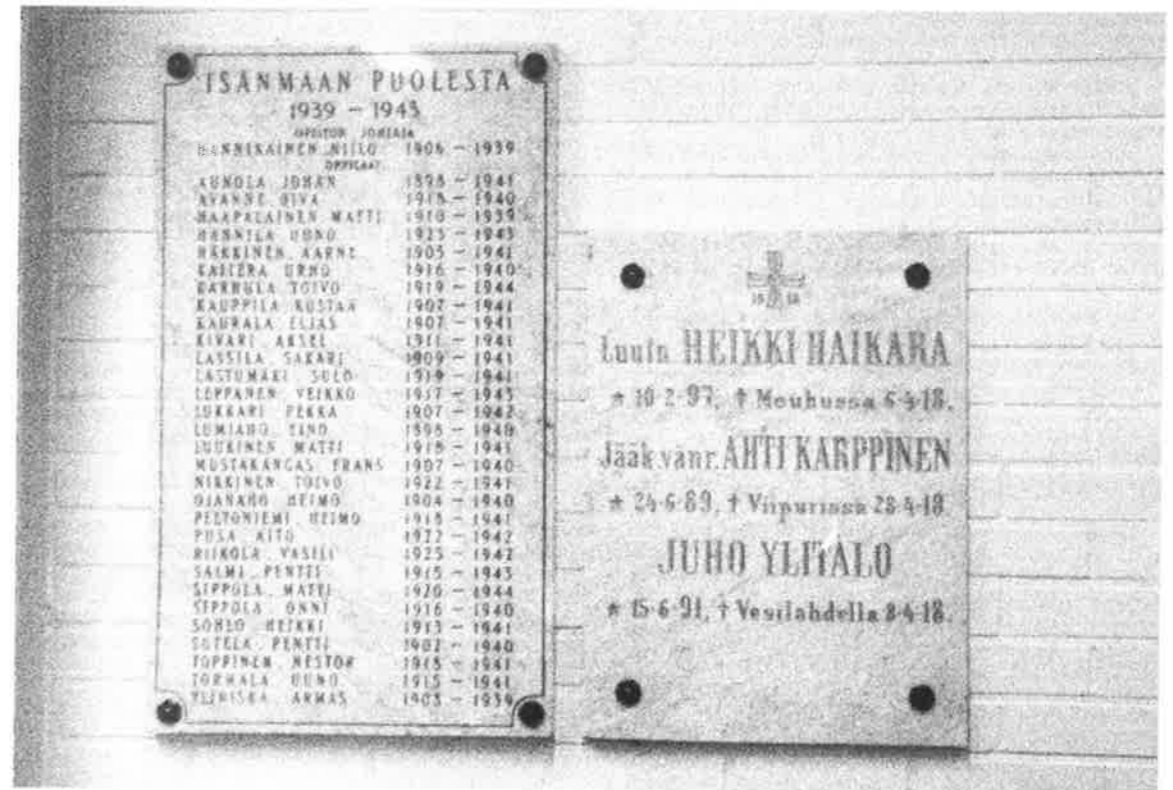 ISÄNMAAN PUOLESTA
1939 – 1945
OPISTON JOHTAJA
HANNIKAINEN NIILO 1906 – 1939
OPPILAAT
AUNOLA JOHAN 1898 – 1941
AVANNE OIVA 1918 – 1940
HAAPALAINEN MATTI 1910 – 1939
HANNILA UUNO 1923 – 1943
HÄKKINEN AARNE 1905 – 1941
KALLERA URHO 1916 – 1940
KARHULA TOIVO 1919 – 1944
KAUPPILA KUSTAA 1907 – 1941
KAURALA ELIAS 1907 – 1941
KIVARI AKSEL 1911 – 1941
LASSILA SAKARI 1909 – 1941
LASTUMÄKI SULO 1919 – 1941
LEPPÄNEN VEIKKO 1917 – 1943
LUKKARI PEKKA 1907 – 1942
LUMIAHO EINO 1898 – 1940
LUUKINEN MATTI 1918 – 1941
MUSTAKANGAS FRANS 1907 – 1940
NIKKINEN TOIVO 1922 – 1941
OJANAHO HEIMO 1904 – 1940
PELTONIEMI HEIMO 1918 – 1941
PUSA AITO 1922 – 1942
RIIKOLA VASILI 1925 – 1942
SALMI PENTTI 1915 – 1943
SIPPOLA MATTI 1920 – 1944
SIPPOLA ONNI 1916 – 1940
SOHLO HEIKKI 1913 – 1941
SUTELA PENTTI 1902 – 1940
TOPPINEN NESTOR 1918 – 1941
TÖRMÄLÄ UUNO 1915 – 1941
YLINISKA ARMAS 1903 – 1939
19 18
Luutn HEIKKI HAIKARA
* 10-2-97, † Mouhussa 6-4-18.
Jääk.vänr. AHTI KARPPINEN
* 24-6-89, † Viipurissa 28-4-18
JUHO YLITALO
* 15-6-91, † Vesilahdella 8-4-18.